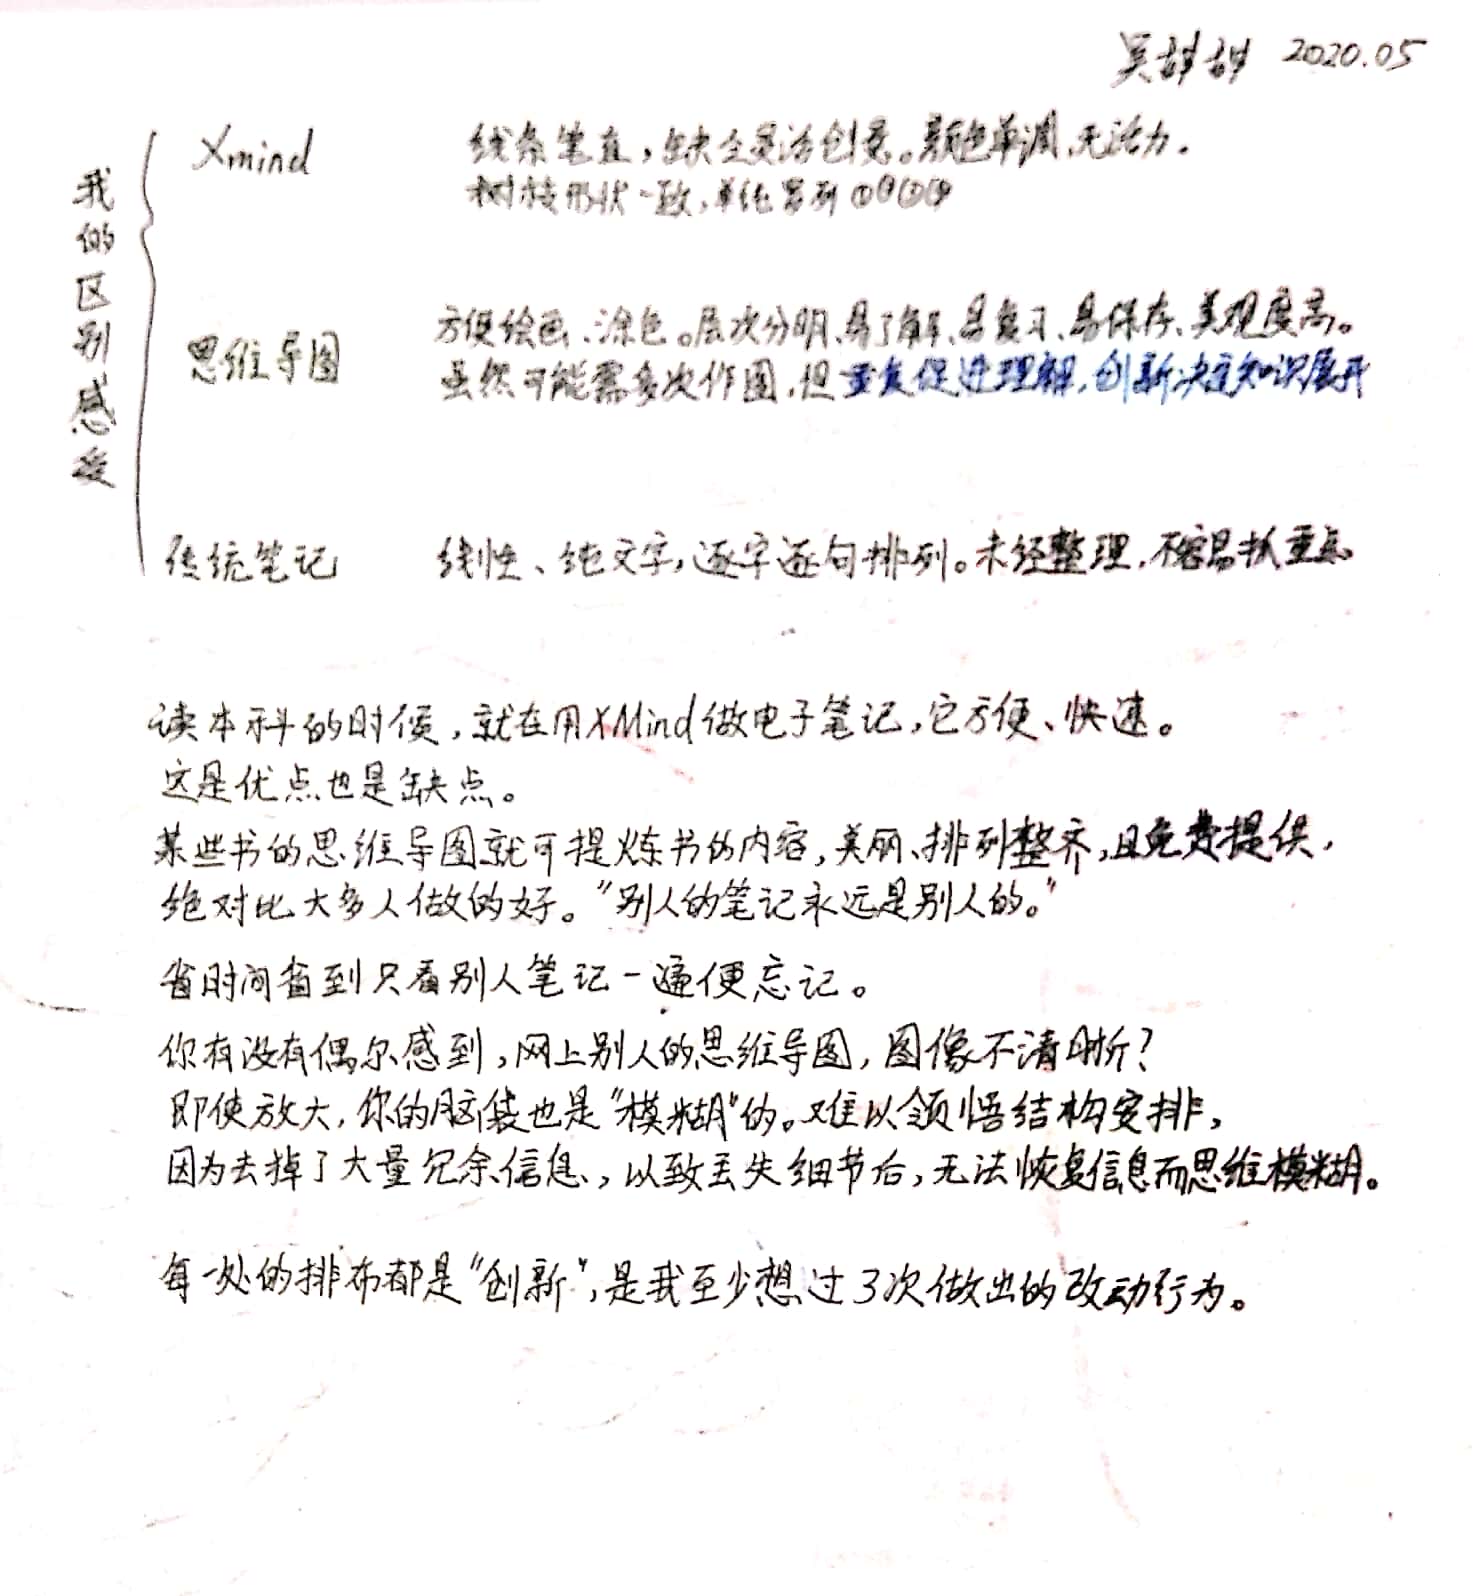 吴甜甜 2020.05
我的区别感受
Xmind
线条笔直，缺乏灵活创意。颜色单调、无活力。
树枝形状一致，单纯罗列①②③④
思维导图
方便绘画、涂色。层次分明、易了解、易复习、易保存、美观度高。
虽然可能需多次作图，但重复促进理解，创新决定知识展开
传统笔记
线性、纯文字，逐字逐句排列。未经整理，不容易抓重点
读本科的时候，就在用XMind做电子笔记，它方便、快速。
这是优点也是缺点。
某些书的思维导图就可提炼书的内容，美丽、排列整齐，且免费提供，
绝对比大多人做的好。“别人的笔记永远是别人的。”
省时间省到只看别人笔记一遍便忘记。
你有没有偶尔感到，网上别人的思维导图，图像不清晰？
即使放大，你的脑袋也是“模糊”的。难以领悟结构安排，
因为去掉了大量冗余信息，以致丢失细节后，无法恢复信息而思维模糊。
每一处的排布都是“创新”，是我至少想过3次做出的改动行为。